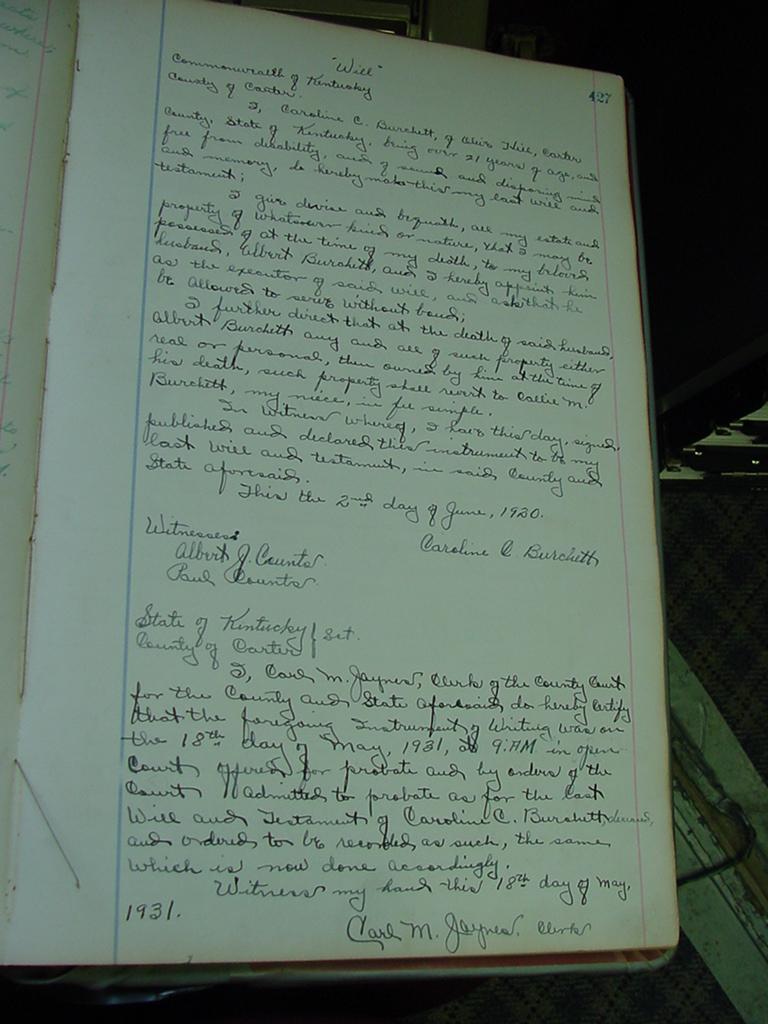 "Will"
427
Commonwealth of Kentucky
County of Carter.
I, Caroline C. Burchett, of Weir Hill, Carter
County, State of Kentucky, being over 21 years of age, and
free from disability, and of sound and disposing mind
and memory, do hereby make this my last will and
testament;
I give devise and bequeath, all my estate and
property of whatsoever kind or nature, that I may be
possessed of at the time of my death, to my beloved
husband, Albert Burchett, and I hereby appoint him
as the executor of said will, and ask that he
be allowed to serve without bond;
I further direct that at the death of said husband,
Albert Burchett any and all of such property either
real or personal, then owned by him at the time of
his death, such property shall revert to Callie M.
Burchett, my niece, in fee simple.
In Witness whereof, I have this day, signed,
published and declared this instrument to be my
last will and testament, in said County and
State aforesaid.
This the 2nd day of June, 1920.
Caroline C Burchett
Witnesses:
Albert J. Counts
Paul Counts
State of Kentucky } Sct.
County of Carter
I, Carl M. Jaynes, Clerk of the County Court
for the County and State aforesaid do hereby certify
that the foregoing Instrument of Writing was on
the 18th day of May, 1931, at 9:AM in open
Court offered for probate and by orders of the
Court admitted to probate as for the last
Will and Testament of Caroline C. Burchett, deceased,
and ordered to be recorded as such, the same
which is now done accordingly.
Witness my hand this 18th day of May,
1931.
Carl M. Jaynes, Clerk